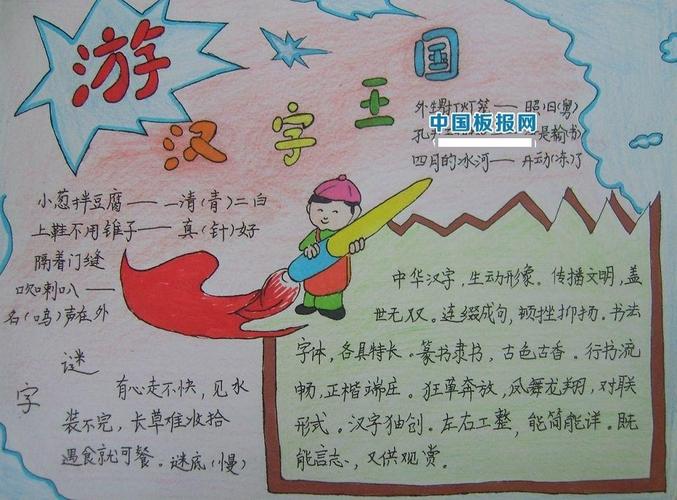 游
汉字王国
外甥打灯笼——照旧(舅)
中国板报网
孔
是输(书)
四月的冰河——开动(冻)了
小葱拌豆腐——一清(青)二白
上鞋不用锥子——真(针)好
隔着门缝
吹喇叭——
名(鸣)声在外
字谜
有心走不快,见水
装不完,长草难收拾
遇食就可餐。谜底(慢)
中华汉字,生动形象。传播文明,盖
世无双。连缀成句,顿挫抑扬。书法
字体,各具特长。篆书隶书,古色古香。行书流
畅,正楷端庄。狂草奔放,凤舞龙翔,对联
形式。汉字独创。左右工整,能简能详。既
能言志,又供观赏。